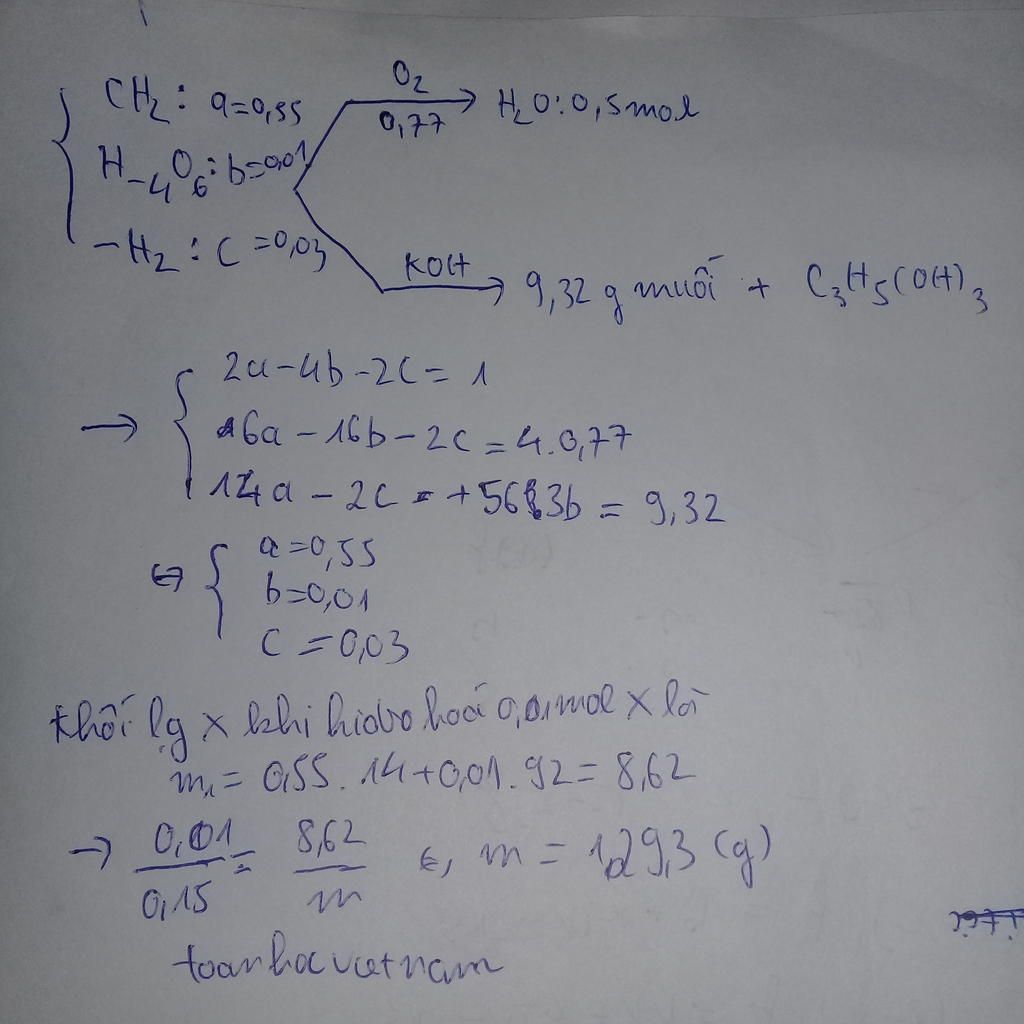 CH₂ : a=0,55
O₂
0,77
H₂O : 0,5mol
H₋₄O₆ : b=0,01
-H₂ : C=0,03
KOH
9,32 g muối + C₃H₅(OH)₃
→ { 2a-4b-2c=1
6a-16b-2c=4.0,77
14a-2c+56.3b=9,32
⇔ { a=0,55
b=0,01
c=0,03
Khối lg x khi hidro hoá 0,01mol x là
m₁=0,55.14+0,01.92=8,62
→ 0,01/0,15 = 8,62/m ⇔ m = 129,3 (g)
toanhocvietnam